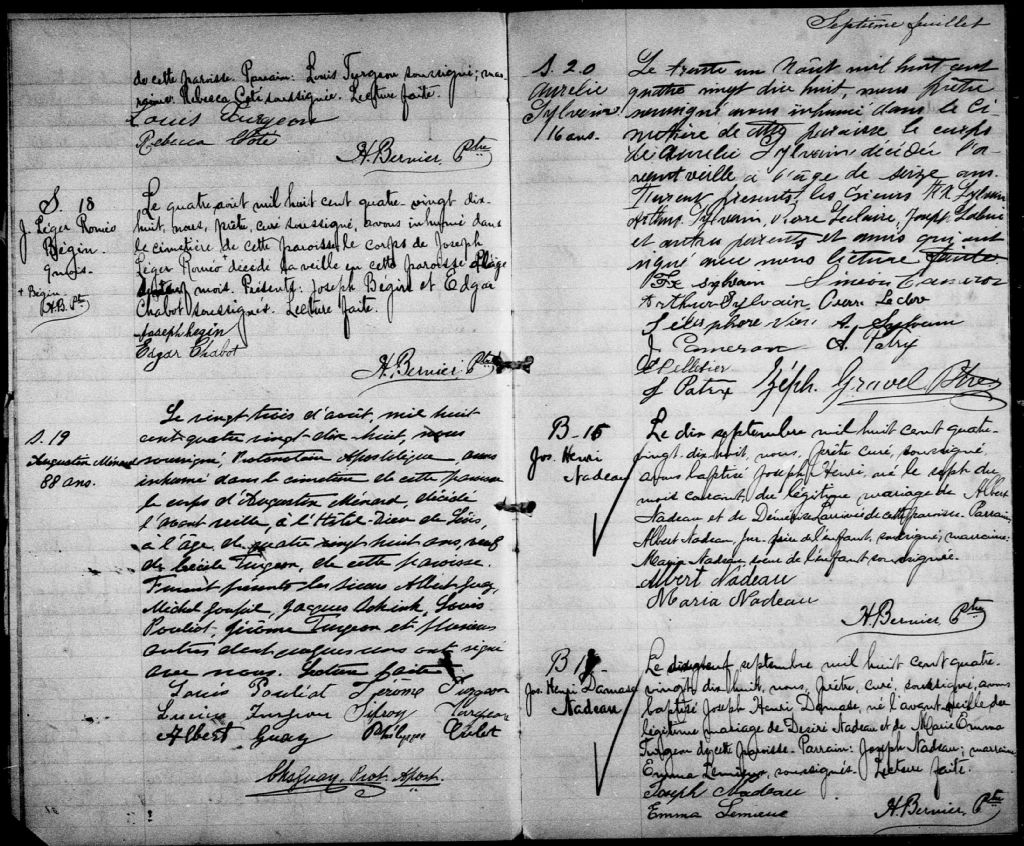 de cette paroisse. Parrain: Louis Turgeon soussigné; mar-
raine: Rebecca Coté soussignée. Lecture faite.
Louis Turgeon
Rebecca Côté
H. Bernier, Ptre
S. 18
J. Léger Roméo
Bégin.
+ Bégin.
H.B. Pt
Le quatre août mil huit cent quatre-vingt dix-
huit, nous, prêtre, curé soussigné, avons inhumé dans
le cimetière de cette paroisse le corps de Joseph
Léger Roméo + décédé la veille en cette paroisse à l'âge
mois. Présents: Joseph Bégin et Edgar
Chabot soussignés. Lecture faite.
Joseph Begin
Edgar Chabot
H. Bernier, Ptre
S. 19
Augustin Ménard
88 ans.
Le vingt trois d'août, mil huit
cent quatre vingt-dix-huit, nous
soussigné, Protonotaire Apostolique, avons
inhumé dans le cimetière de cette paroisse
le corps d'Augustin Ménard, décédé
l'avant veille, à l'Hôtel-Dieu de Lévis,
à l'âge de quatre vingt huit ans, veuf
de Turgeon, de cette paroisse.
Furent présents les sieurs Albert Guay,
Michel Jacques Louis
Pouliot, Jérôme Turgeon et plusieurs
autres dont quelques uns ont signé
avec nous. Lecture faite
Louis Pouliot Jérôme Turgeon
Turgeon Turgeon
Albert Guay Philippe
Chs Guay, Prot. Apost.
Septième feuillet
S. 20
Aurélie
Sylvain
16 ans.
Le trente un Août mil huit cent
quatre vingt dix huit, nous prêtre
soussigné avons inhumé dans le ci-
metière de cette paroisse le corps
de Aurélie Sylvain décédée l'a-
vant veille à l'âge de seize ans.
Furent présents, les Sieurs F.X. Sylvain
Arthur Sylvain, Pierre Leclerc, Joseph
et autres parents et amis qui ont
signé avec nous lecture faite
F.X. Sylvain Siméon
Arthur Sylvain
Télesphore Vien A. Sylvain
J. Cameron A. Patry
Pelletier
J Patry Zéph. Gravel Ptre
B-15
Jos. Henri
Nadeau
Le dix septembre mil huit cent quatre-
vingt-dix-huit, nous, prêtre curé, soussigné,
avons baptisé Joseph Henri, né le sept du
mois courant, du légitime mariage de Albert
Nadeau et de de cette paroisse. Parrain:
Albert Nadeau, frère de l'enfant, soussigné; marraine:
Maria Nadeau, soeur de l'enfant soussignée.
Albert Nadeau
Maria Nadeau
H. Bernier, Ptre
B
Jos. Henri Damase
Nadeau
Le dixneuf septembre mil huit cent quatre-
vingt-dix huit, nous, prêtre, curé, soussigné, avons
baptisé Joseph Henri Damase, né l'avant-veille du
légitime mariage de Désiré Nadeau et de Marie Emma
Turgeon de cette paroisse. Parrain: Joseph Nadeau; marraine
Emma Lemieux, soussignés. Lecture faite.
Joseph Nadeau
Emma Lemieux
H. Bernier, Ptre